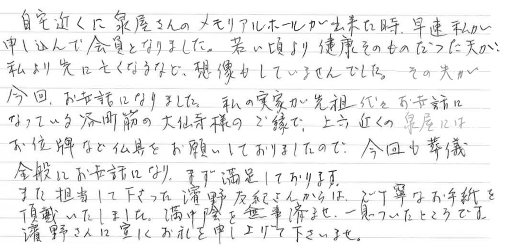 自宅近くに泉屋さんのメモリアルホールが出来た時、早速私が
申し込んで会員となりました。若い頃より健康そのものだった夫が、
私より先に亡くなるなど、想像もしていませんでした。その夫が
今回、お世話になりました。私の実家が先祖代々お世話に
なっている谷町筋の大仙寺様のご縁で、上六近くの泉屋には
お位牌など仏具をお願いしておりましたので、今回も葬儀
全般にお世話になり、まず満足しております。
また担当して下さった濱野友紀さんからは、ご丁寧なお手紙を
頂戴いたしました。満中陰を無事済ませ、一息ついたところです。
濱野さんに宜しくお礼を申し上げて下さいませ。